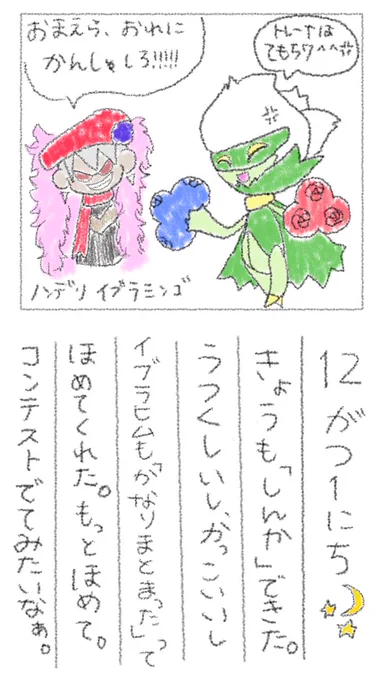 おまえら、おれに
かんしゃしろ!!!!!
トレーナは
てもちワ^^
ノンデリ イブラミンゴ
12がつ1にち
きょうも「しんか」できた。
うつくしいし、かっこいいし
イブラヒムも「かなりまとまった」って
ほめてくれた。もっとほめて。
コンテストでてみたいなぁ。